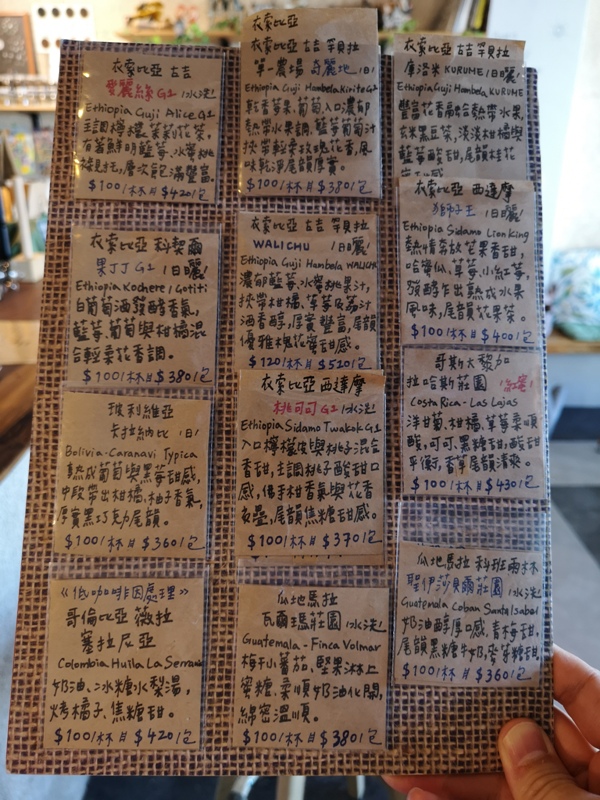 衣索比亞 古吉
愛麗絲 G1 |水洗|
Ethiopia Guji Alice G1
主調檸檬、茉莉花茶。
有著鮮明藍莓、水蜜桃
層次飽滿豐富。
$100/杯 # $420/包
衣索比亞 科契爾
果丁丁 G1 |日曬|
Ethiopia Kochere / Gotiti
白葡萄酒發酵香氣,
藍莓、葡萄與柑橘混
合輕柔花香調。
$100/杯 # $380/包
玻利維亞
卡拉納比 |日|
Bolivia-Caranavi Typica
熟成葡萄與黑莓甜感,
中段帶出柑橘、柚子香氣,
厚實黑巧克力尾韻。
$100/杯 # $360/包
《低咖啡因處理》
哥倫比亞 薇拉
塞拉尼亞
Colombia Huila La Serrania
奶油、冰糖水梨湯,
烤橘子、焦糖甜。
$100/杯 # $420/包
衣索比亞
衣索比亞 古吉 罕貝拉
單一農場 奇麗地 |日|
Ethiopia Guji Hambela Kirite G1
乾香莓果、葡萄,入口濃郁
熱帶水果調,藍莓葡萄汁
挾帶輕柔玫瑰花香,風
味乾淨尾韻厚實。
$100/杯 # $380/包
衣索比亞 古吉 罕貝拉
WALICHU |日曬|
Ethiopia Guji Hambela WALICHU
濃郁藍莓、水蜜桃果汁,
挾帶柑橘、草莓及荔汁
酒香醇,厚實豐富,尾韻
優雅槐花蜜甜感。
$120/杯 # $520/包
衣索比亞 西達摩
桃可可 G1 |水洗|
Ethiopia Sidamo Twakok G1
入口檸檬皮與桃子混合
香甜,主調桃子酸甜口
感,佛手柑香氣與花香
交疊,尾韻焦糖甜感。
$100/杯 # $370/包
瓜地馬拉
瓦爾瑪莊園 |水洗|
Guatemala - Finca Volmar
梅汁小蕃茄、堅果淋上
蜜糖、柔順奶油化開,
綿密溫順。
$100/杯 # $380/包
衣索比亞 古吉 罕貝拉
庫洛米 KURUME |日曬|
Ethiopia Guji Hambela KURUME
豐富花香融合熱帶水果,
玄米黑豆茶,淡淡柑橘與
藍莓酸甜,尾韻桂花
衣索比亞 西達摩
獅子王 |日曬|
Ethiopia Sidamo Lion King
熱情奔放芒果香甜,
哈蜜瓜、草莓、小紅莓,
發酵乍出熟成水果
風味,尾韻花果茶。
$100/杯 # $400/包
哥斯大黎加
拉哈斯莊園 |紅蜜|
Costa Rica - Las Lajas
洋甘菊、柑橘、草莓柔順
酸,可可、黑糖甜,酸甜
平衡,香草尾韻清爽。
$100/杯 # $430/包
瓜地馬拉 科班雨林
聖伊莎貝爾莊園 |水洗|
Guatemala Coban Santa Isabel
奶油醇厚口感,青梅甜,
尾韻黑糖牛奶,麥芽糖甜。
$100/杯 # $360/包